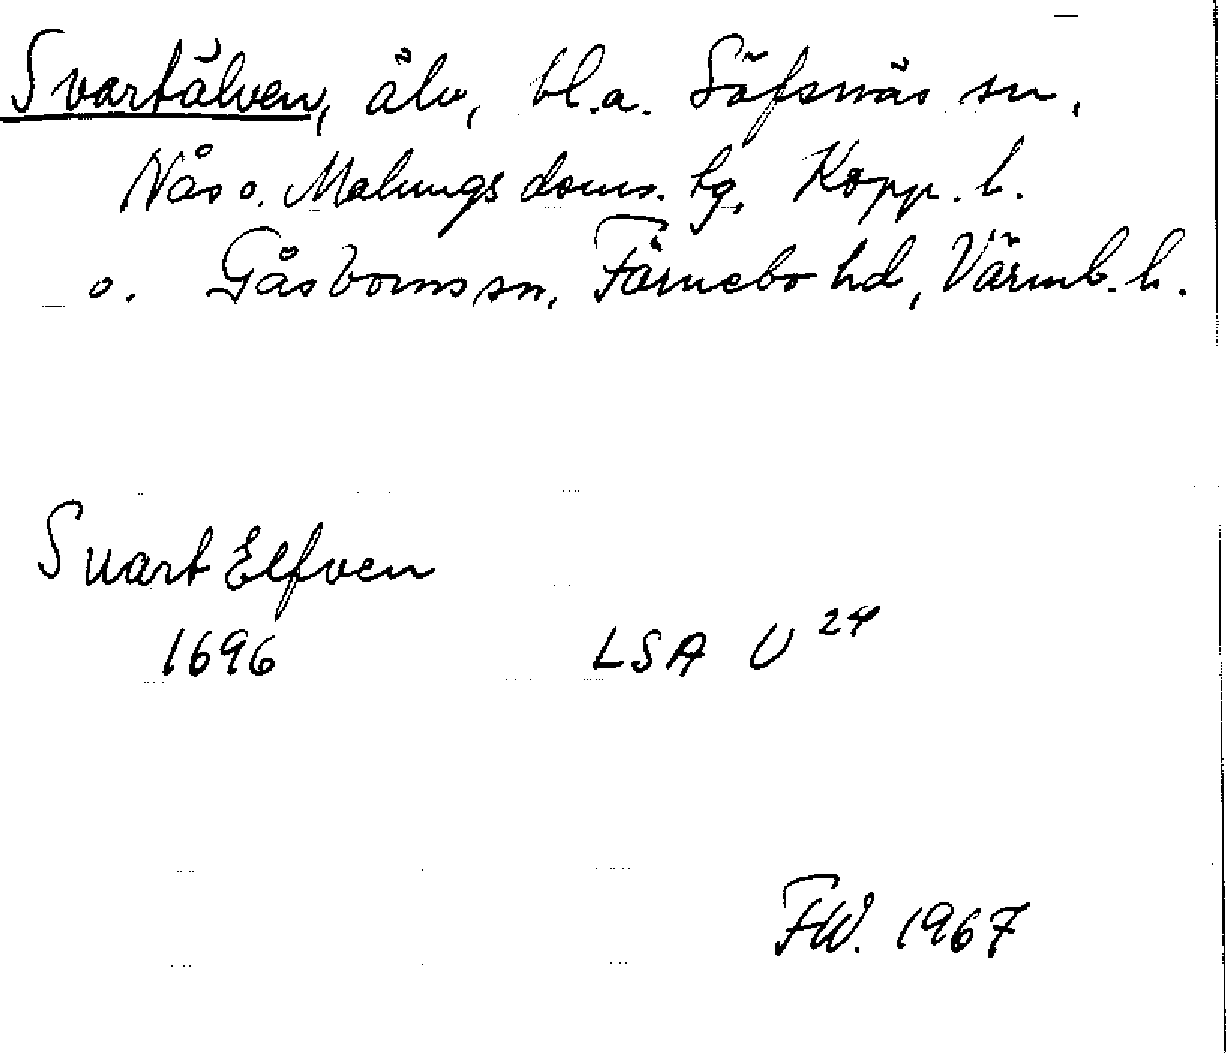 Svartälven, älv, bl.a. Säfsnäs sn,
Nås o. Malungs doms. tg, Kopp. l.
o. Gåsborns sn, Färnebo hd, Värml. l.
Suart Elfven
1696 LSA U 24
FW. 1967